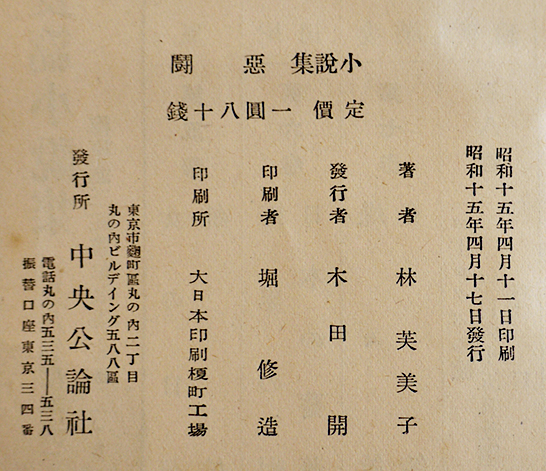 小說集 惡 鬪
定價 一圓八十錢
昭和十五年四月十一日印刷
昭和十五年四月十七日發行
著者 林芙美子
發行者 木田開
印刷者 堀修造
印刷所 大日本印刷榎町工場
東京市麴町區丸の內二丁目
丸の內ビルデイング五八八區
發行所 中央公論社
電話丸の內五三五一—五三八
振替口座東京三四番